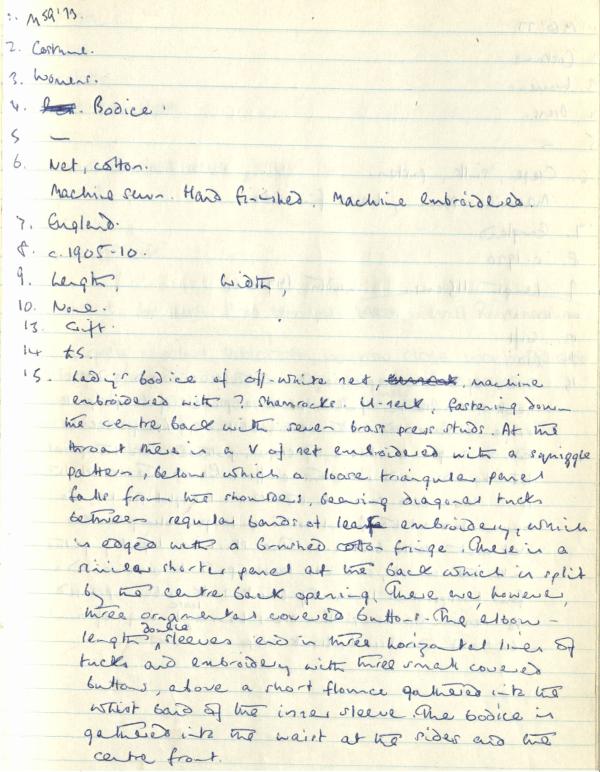 1. M59'73
2. Costume.
3. Womens.
4. Bodice.
5 —
6. Net, cotton.
Machine sewn. Hand finished. Machine embroidered.
7. England.
8. c.1905-10.
9. Length, Width,
10. None.
13. Gift.
14 £5
15. Lady's bodice of off-white net, machine
embroidered with ? shamrocks. U-neck, fastening down
the centre back with seven brass press studs. At the
throat there is a V of net embroidered with a squiggle
pattern, below which a loose triangular panel
falls from the shoulders, bearing diagonal tucks
between regular bands of leaf embroidery, which
is edged with a brushed cotton fringe. There is a
similar shorter panel at the back which is split
by the centre back opening. There are, however,
three ornamental covered buttons. The elbow-
length double sleeves end in three horizontal lines of
tucks and embroidery with three small covered
buttons, above a short flounce gathered into the
whist band of the inner sleeve. The bodice is
gathered into the waist at the sides and the
centre front.